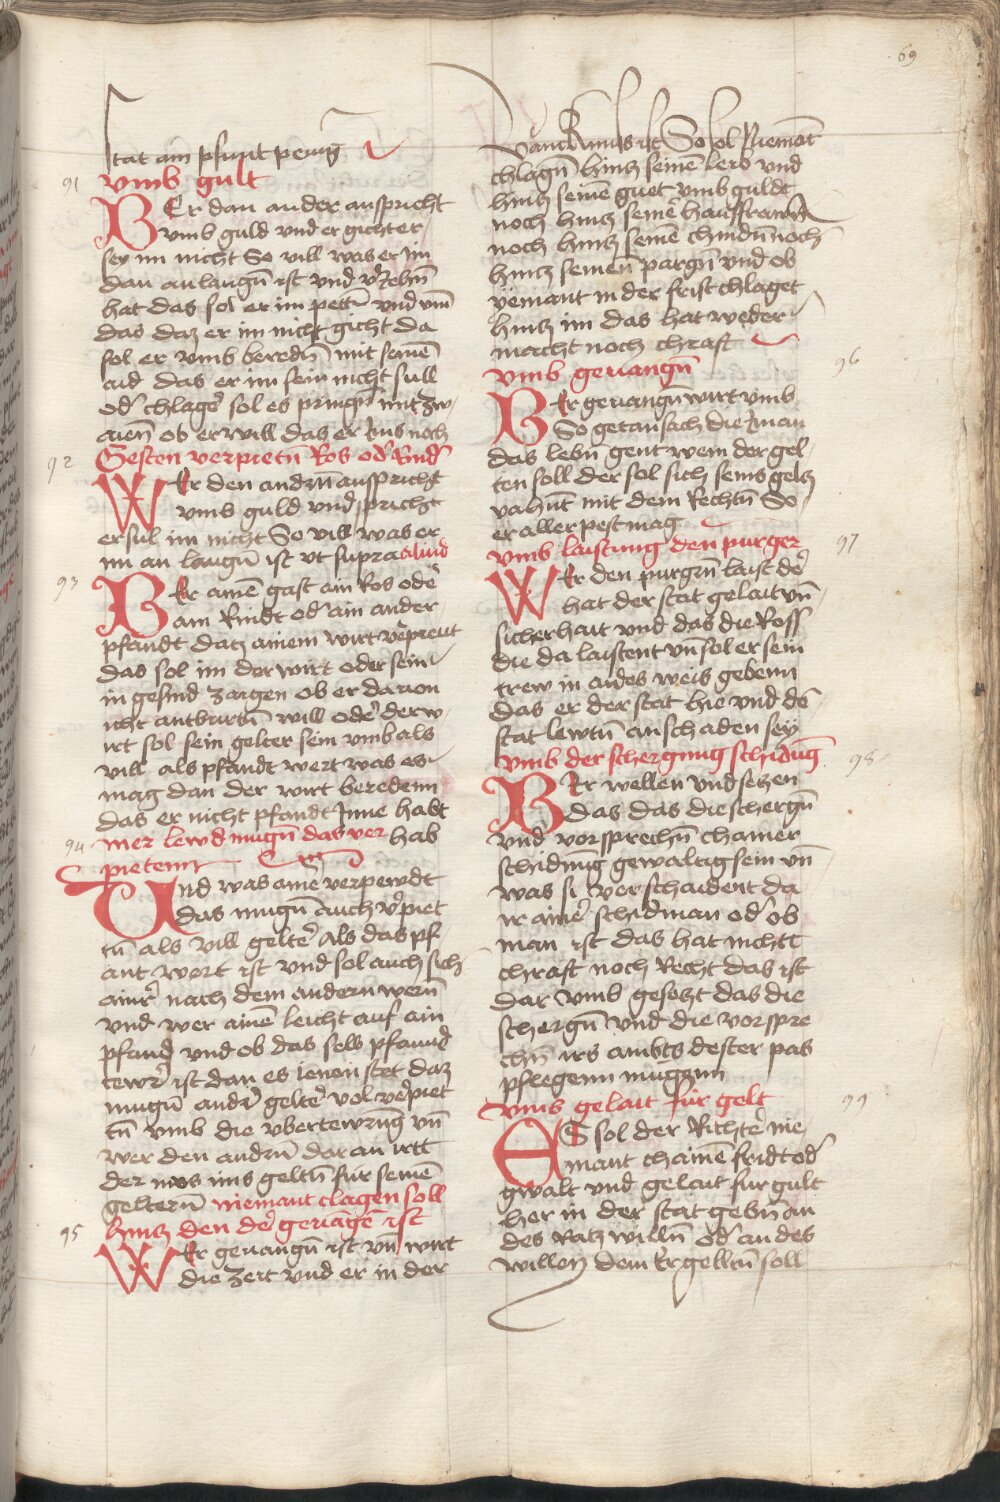 69
stat ain pfunt pening
91
vmb gult
BEr dan ander anspricht
vmb guld vnd er gichter
sey im nicht So vill was er im
dan an laugn̄ ist vnd v̓zehn̄
hat das sol er im pett vnd vm̄
das daz er im nicht gicht da
sol er vmb beredn̄ mit seinē
aid das er im sein nicht sull
od̓ chlagē sol es pringn̄ mit zw
aien̄ ob er will das er
92
Gesten verpietn̄ Ros od̓ Rind̓
WEr den andrn̄ anspricht
vmb guld vnd spricht
er sul im nicht So vill was er
im an laugn̄ ist vt supra aliud
93
BEr ainē gast ain Ros odē
ain Rindt od̓ ain ander
pfandt datz ainem wirt v̓peut
das sol im der wirt oder sein
in gesind zaigen ob er dauon
icht antburtn̄ will odē der w
irt sol sein gelter sein vmb als
vill als pfandt wert was es
mag dan der wirt beredenn
das er nicht pfandt Inne habt
94
mer lewd mugn̄ das ver hab
pietenn
Vnd was ainē verpewdt
das mugn̄ auch v̓piet
tn̄ als vill geltē Als das pf
ant wert ist vnd sol auch sich
ainr̄ nach dem andern wern̄
vnd wer ainē leicht auf ain
pfand vnd ob das selb pfannd
tewr̄ ist dan es ienen stet daz
mugn̄ andr̄ geltē vol v̓piet
tn̄ vmb die vbertewrung vn̄
wer den andrn̄ daran irtt
der mos ims geltn̄ fur seinē
geltern̄ niemant clagen soll
hintz den dē geuāgē ist
95
WEr geuangn̄ ist vn̄ wirt
die zeit vnd er in der
vanckhnus ist So sol Niemāt
chlagn̄ hintz seinē leib vnd
hintz seinē guet vmb guldt
noch hintz seinē hausfrawn̄
noch hintz seinē chindn̄ noch
hintz seinen̄ pargn̄ vnd ob
yemant in der frist chlaget
hintz im das hat weder
macht noch chraft
96
vmb geuangn̄
BEr geuangn̄ wirt vmb
So getan sach die man
das lebn̄ gent wem der gel
ten soll der sol sich seins geltz
vahn̄t mit dem Rechtn̄ So
er aller pest mag
97
vmb laistung den purger
WEr den purgrn̄ laist dē
hat der stat gelait vn̄
sicherhait vnd das die Ross
die da laistent vn̄ sol er sein
trew in aides weis gebenn
das er der stat hie vnd dē
stat lewtn̄ an schaden sey
98
vmb der schergnng schidūg
BEr wellen vnd setzen
das das die schergn̄
vnd vorsprechn̄ chainer
schidung gewaltig sein vn̄
was si verschaident da
ir ainē schidman od̓ ob
man ist das hat nichtt
chraft noch Recht das ist
dar vmb gesetzt das die
schergn̄ vnd die vorspre
chn̄ irs ambts dester pas
pflegenn mugenn
99
vmb gelait fur gelt
ES sol der Richtē nie
mant chainē fridt od̓
gwalt vnd gelait fur gult
her in der stat gebn̄ an
des Ratz willn̄ od̓ an des
willen dem Er gelltn̄ soll